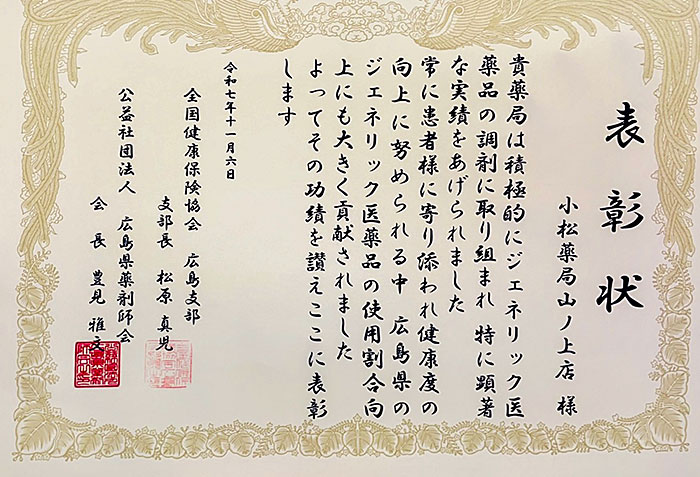 表彰状
小松薬局山ノ上店 様
貴薬局は積極的にジェネリック医
薬品の調剤に取り組まれ 特に顕著
な実績をあげられました
常に患者様に寄り添われ健康度の
向上に努められる中 広島県の
ジェネリック医薬品の使用割合向
上にも大きく貢献されました
よってその功績を讃えここに表彰
します
令和七年十一月六日
全国健康保険協会 広島支部
支部長 松原 真児
公益社団法人 広島県薬剤師会
会長 豊見 雅文